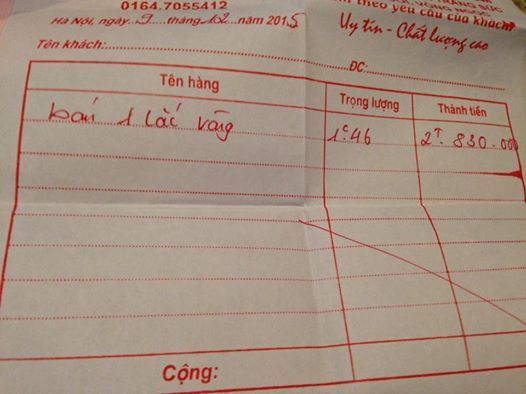 0164.7055412
TRANG SỨC
theo yêu cầu của khách
Hà Nội, ngày 9 tháng 12 năm 2015
Uy tín - Chất lượng cao
Tên khách:
ĐC:
Tên hàng Trọng lượng Thành tiền
bán 1 lắc vàng 1c46 2T.830.000
Cộng: